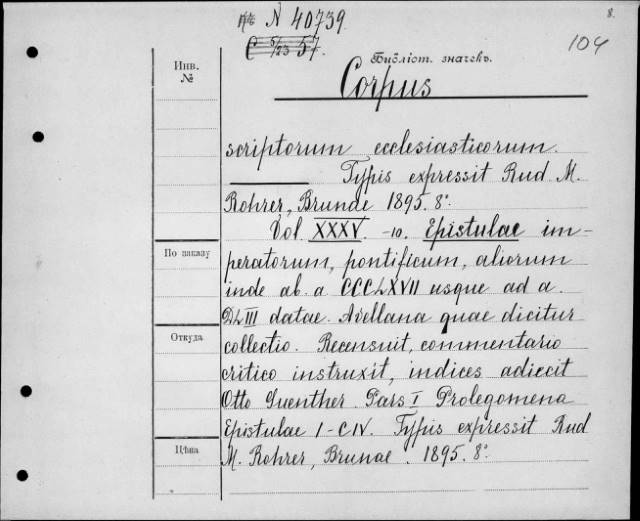 № N 40739.
8.
C 5/23 57.
104
Библіот. значекъ.
Инв.
№
Corpus
scriptorum ecclesiasticorum.
Typis expressit Rud. M.
Rohrer, Brunae 1895. 8º
Vol. XXXV. -10. Epistulae im-
По заказу
peratorum, pontificum, aliorum
inde ab. a CCCLXVII usque ad a.
DLIII datae. Avellana quae dicitur
Откуда
collectio. Recensuit, commentario
critico instruxit, indices adiecit
Otto Guenther. Pars I Prolegomena
Epistulae I-CIV. Typis expressit Rud
Цѣна
M. Rohrer, Brunae. 1895. 8º.